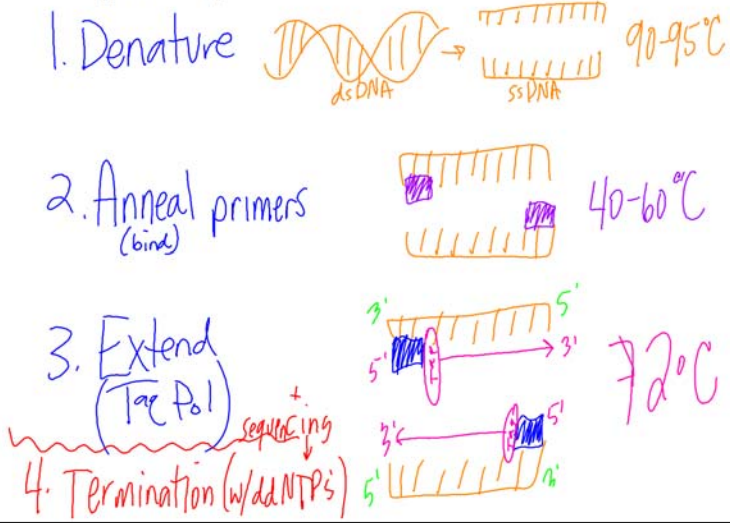 1. Denature
dsDNA
ssDNA
90-95°C
2. Anneal primers
(bind)
40-60°C
3. Extend
(Taq Pol)
3' 5'
5' 3'
72°C
3' 5'
5' 3'
+
sequencing
4. Termination (w/ddNTPs)